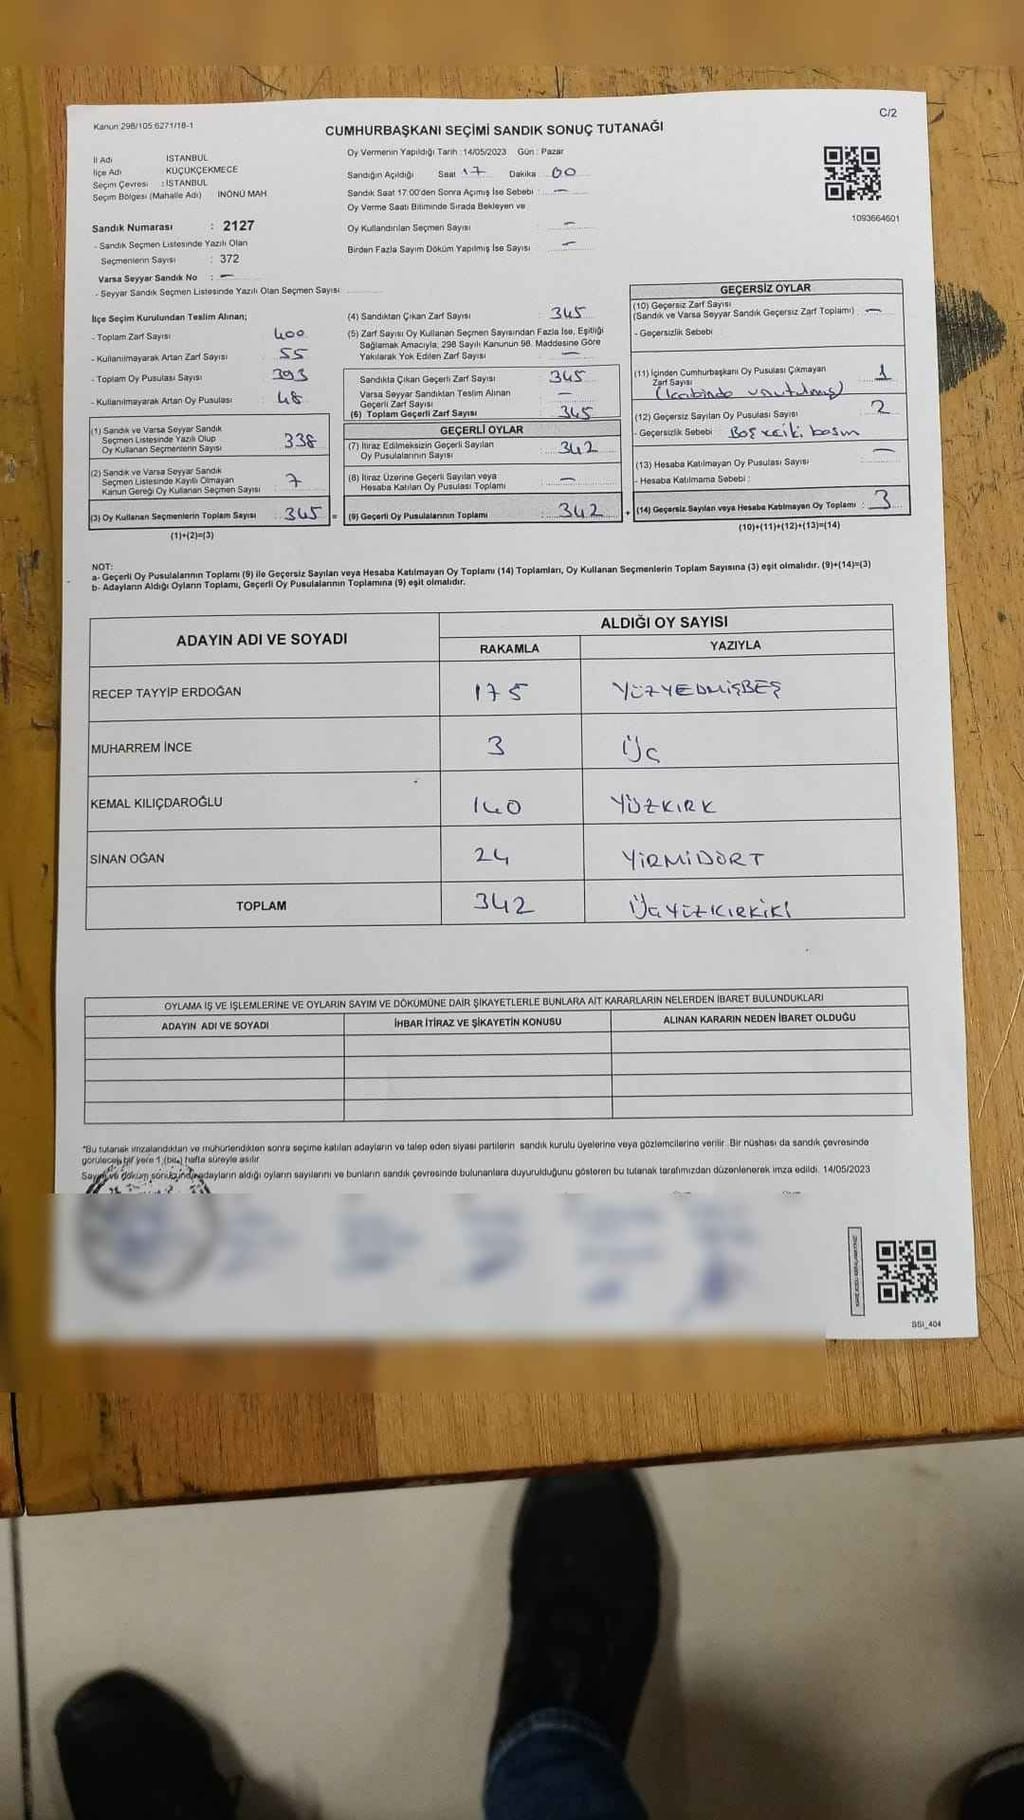 Kanun 298/105 6271/18-1
C/2
CUMHURBAŞKANI SEÇİMİ SANDIK SONUÇ TUTANAĞI
İl Adı İSTANBUL
İlçe Adı KÜÇÜKÇEKMECE
Seçim Çevresi : İSTANBUL
Seçim Bölgesi (Mahalle Adı) İNÖNÜ MAH
Sandık Numarası : 2127
- Sandık Seçmen Listesinde Yazılı Olan
Seçmenlerin Sayısı : 372
Varsa Seyyar Sandık No : —
- Seyyar Sandık Seçmen Listesinde Yazılı Olan Seçmen Sayısı
Oy Vermenin Yapıldığı Tarih :14/05/2023 Gün : Pazar
Sandığın Açıldığı Saat 17 Dakika 00
Sandık Saat 17:00'den Sonra Açımış İse Sebebi : —
Oy Verme Saati Bitiminde Sırada Bekleyen ve
Oy Kullandırılan Seçmen Sayısı —
Birden Fazla Sayım Döküm Yapılmış İse Sayısı —
1093664601
İlçe Seçim Kurulundan Teslim Alınan;
- Toplam Zarf Sayısı 400
- Kullanılmayarak Artan Zarf Sayısı 55
- Toplam Oy Pusulası Sayısı 393
- Kullanılmayarak Artan Oy Pusulası 48
(1) Sandık ve Varsa Seyyar Sandık
Seçmen Listesinde Yazılı Olup
Oy Kullanan Seçmenlerin Sayısı 338
(2) Sandık ve Varsa Seyyar Sandık
Seçmen Listesinde Kayıtlı Olmayan
Kanun Gereği Oy Kullanan Seçmen Sayısı 7
(3) Oy Kullanan Seçmenlerin Toplam Sayısı : 345 =
(1)+(2)=(3)
(4) Sandıktan Çıkan Zarf Sayısı 345
(5) Zarf Sayısı Oy Kullanan Seçmen Sayısından Fazla İse, Eşitliği
Sağlamak Amacıyla; 298 Sayılı Kanunun 98. Maddesine Göre
Yakılarak Yok Edilen Zarf Sayısı —
Sandıkta Çıkan Geçerli Zarf Sayısı 345
Varsa Seyyar Sandıktan Teslim Alınan
Geçerli Zarf Sayısı —
(6) Toplam Geçerli Zarf Sayısı 345
GEÇERLİ OYLAR
(7) İtiraz Edilmeksizin Geçerli Sayılan
Oy Pusulalarının Sayısı 342
(8) İtiraz Üzerine Geçerli Sayılan veya
Hesaba Katılan Oy Pusulası Toplamı —
(9) Geçerli Oy Pusulalarının Toplamı 342 +
GEÇERSİZ OYLAR
(10) Geçersiz Zarf Sayısı
(Sandık ve Varsa Seyyar Sandık Geçersiz Zarf Toplamı) —
- Geçersizlik Sebebi :
(11) İçinden Cumhurbaşkanı Oy Pusulası Çıkmayan
Zarf Sayısı 1
(kabinde unutulmuş)
(12) Geçersiz Sayılan Oy Pusulası Sayısı 2
- Geçersizlik Sebebi : Boş ve iki basım
(13) Hesaba Katılmayan Oy Pusulası Sayısı —
- Hesaba Katılmama Sebebi :
(14) Geçersiz Sayılan veya Hesaba Katılmayan Oy Toplamı : 3
(10)+(11)+(12)+(13)=(14)
NOT:
a- Geçerli Oy Pusulalarının Toplamı (9) ile Geçersiz Sayılan veya Hesaba Katılmayan Oy Toplamı (14) Toplamları, Oy Kullanan Seçmenlerin Toplam Sayısına (3) eşit olmalıdır. (9)+(14)=(3)
b- Adayların Aldığı Oyların Toplamı, Geçerli Oy Pusulalarının Toplamına (9) eşit olmalıdır.
ADAYIN ADI VE SOYADI
ALDIĞI OY SAYISI
RAKAMLA YAZIYLA
RECEP TAYYİP ERDOĞAN 175 YÜZYEDMİŞBEŞ
MUHARREM İNCE 3 ÜÇ
KEMAL KILIÇDAROĞLU 140 YÜZKIRK
SİNAN OĞAN 24 YİRMİDÖRT
TOPLAM 342 ÜÇYÜZKIRKİKİ
OYLAMA İŞ VE İŞLEMLERİNE VE OYLARIN SAYIM VE DÖKÜMÜNE DAİR ŞİKAYETLERLE BUNLARA AİT KARARLARIN NELERDEN İBARET BULUNDUKLARI
ADAYIN ADI VE SOYADI İHBAR İTİRAZ VE ŞİKAYETİN KONUSU ALINAN KARARIN NEDEN İBARET OLDUĞU
*Bu tutanak imzalandıktan ve mühürlendikten sonra seçime katılan adayların ve talep eden siyasi partilerin sandık kurulu üyelerine veya gözlemcilerine verilir. Bir nüshası da sandık çevresinde
görülecek bir yere 1 (bir) hafta süreyle asılır
Sayım ve döküm sonucunda adayların aldığı oyların sayılarını ve bunların sandık çevresinde bulunanlara duyurulduğunu gösteren bu tutanak tarafımızdan düzenlenerek imza edildi. 14/05/2023
SSI_404